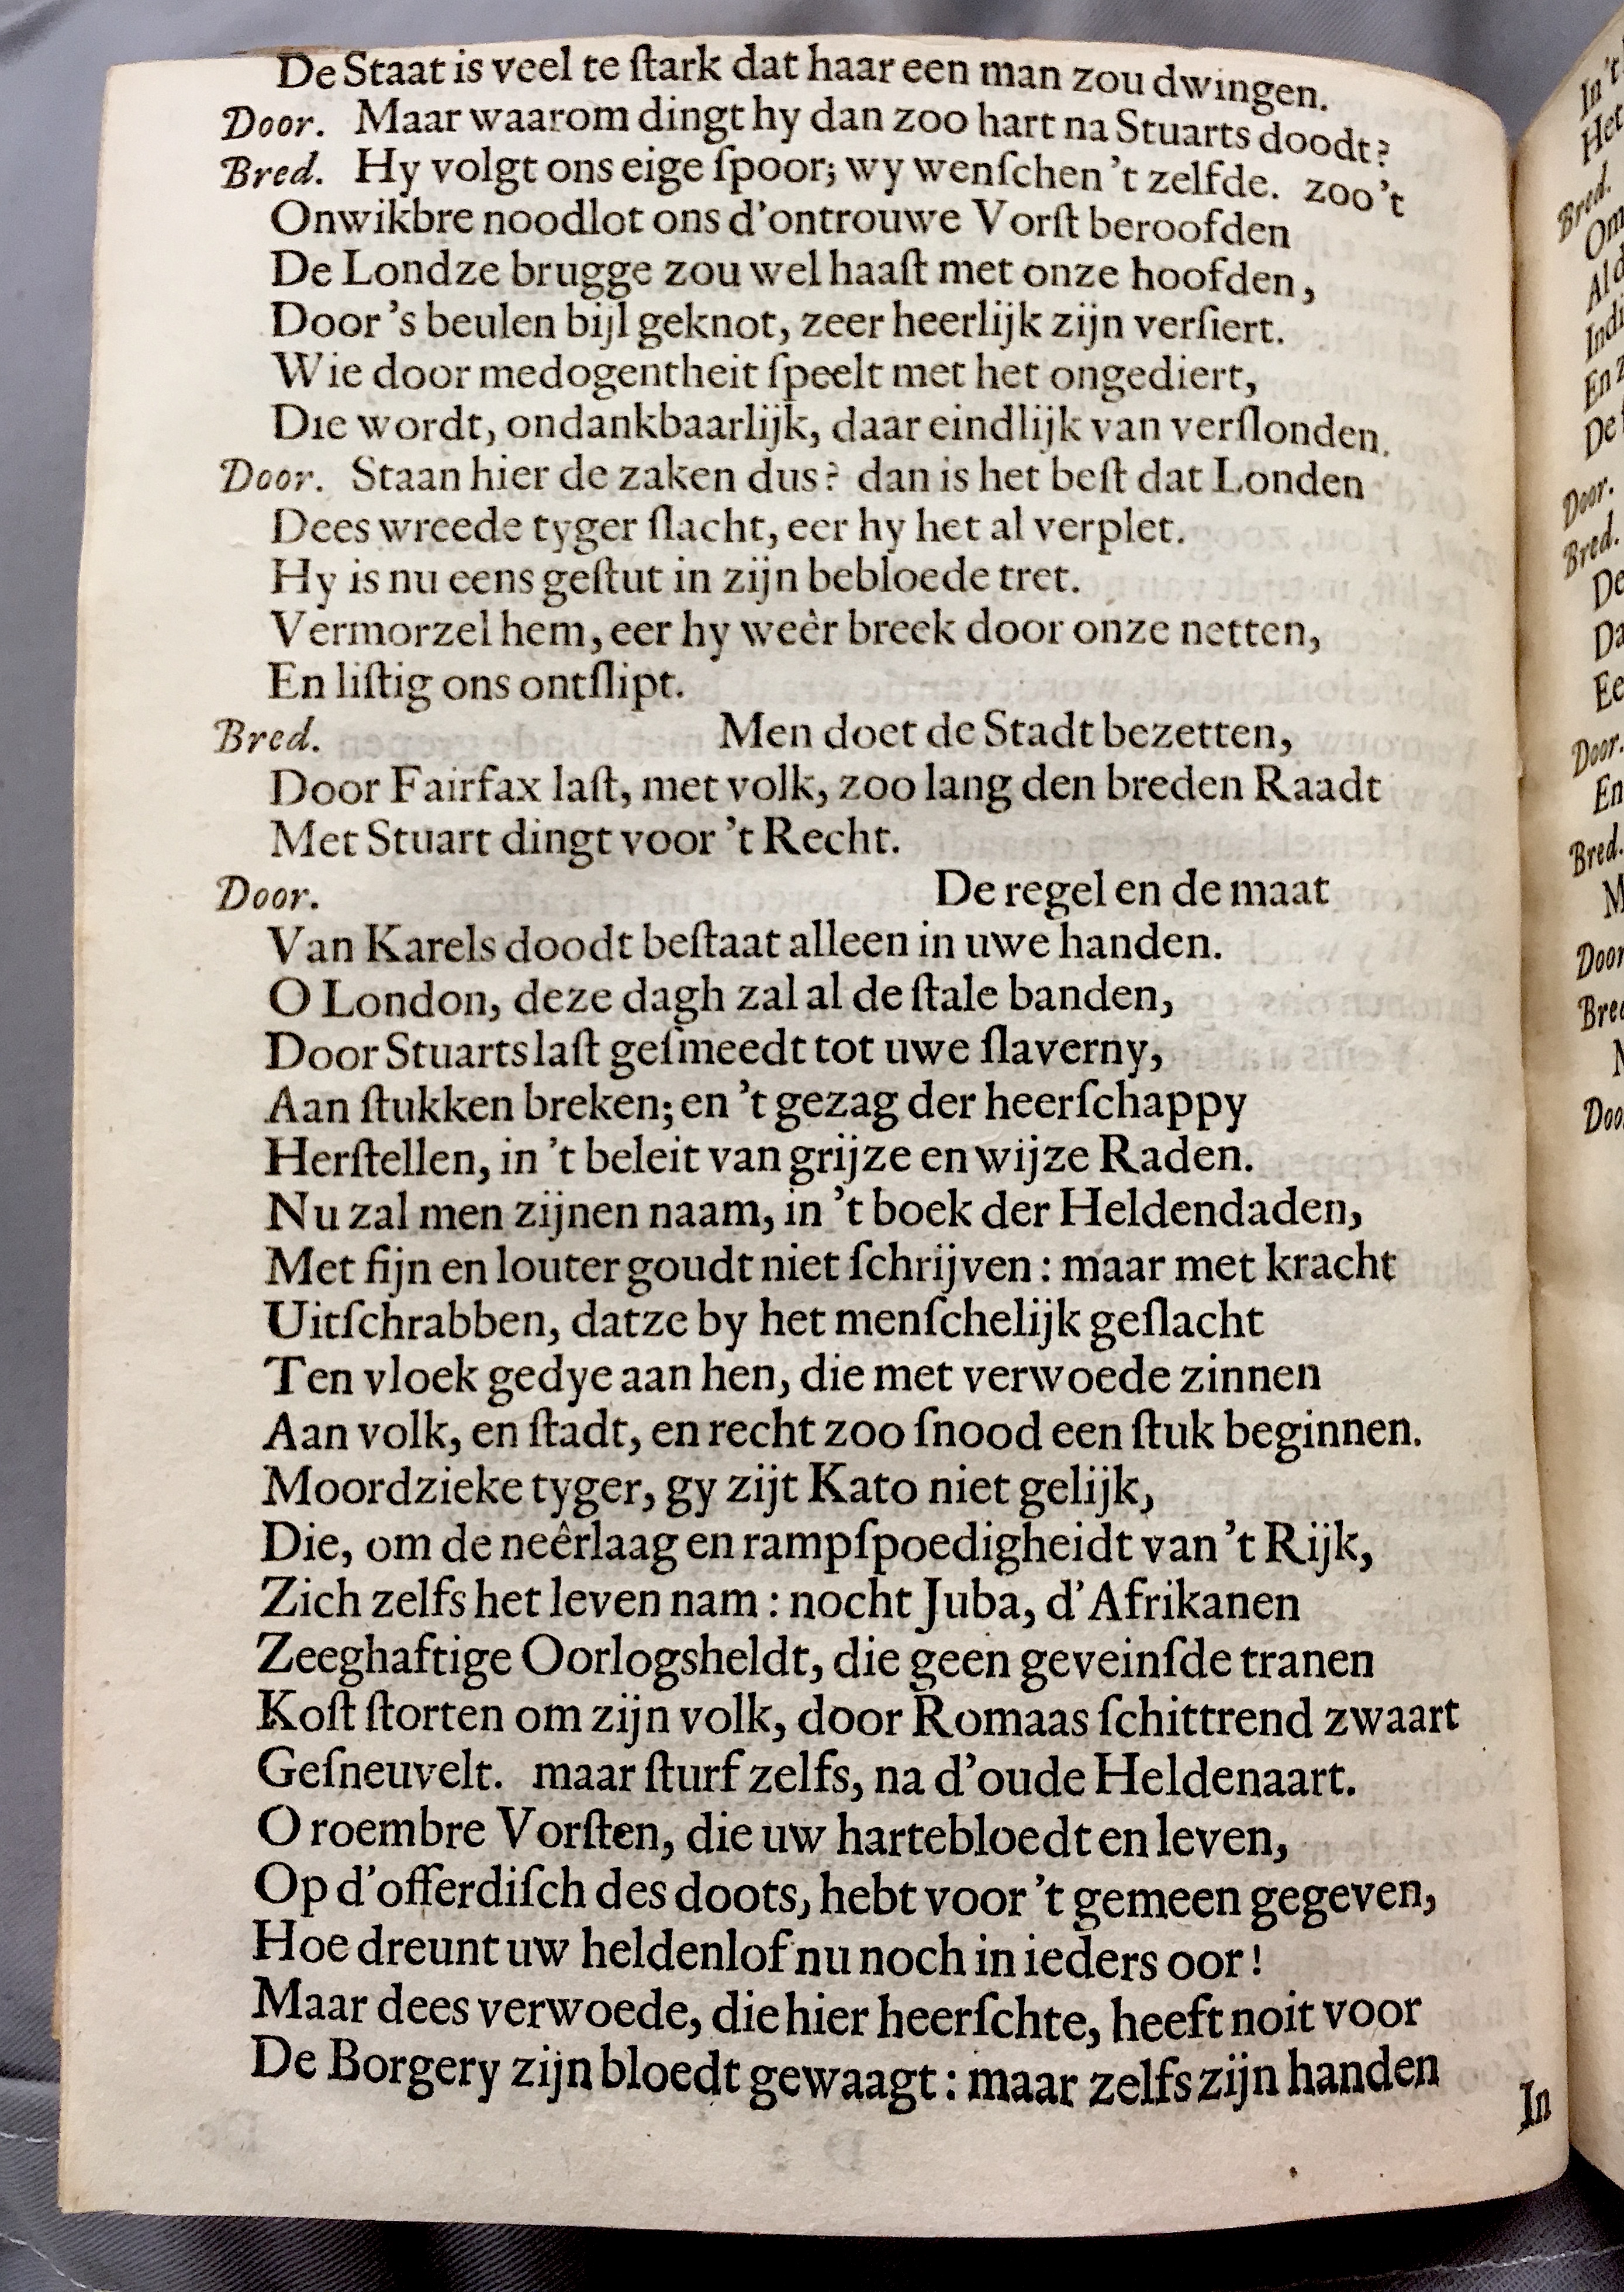 De Staat is veel te ſtark dat haar een man zou dwingen.
Door. Maar waarom dingt hy dan zoo hart na Stuarts doodt?
Bred. Hy volgt ons eige ſpoor; wy wenſchen 't zelfde. zoo 't
Onwikbre noodlot ons d'ontrouwe Vorſt beroofden
De Londze brugge zou wel haaſt met onze hoofden,
Door 's beulen bijl geknot, zeer heerlijk zijn verſiert.
Wie door medogentheit ſpeelt met het ongediert,
Die wordt, ondankbaarlijk, daar eindlijk van verſlonden.
Door. Staan hier de zaken dus? dan is het beſt dat Londen
Dees wreede tyger ſlacht, eer hy het al verplet.
Hy is nu eens geſtut in zijn bebloede tret.
Vermorzel hem, eer hy weêr breek door onze netten,
En liſtig ons ontſlipt.
Bred. Men doet de Stadt bezetten,
Door Fairfax laſt, met volk, zoo lang den breden Raadt
Met Stuart dingt voor 't Recht.
Door. De regel en de maat
Van Karels doodt beſtaat alleen in uwe handen.
O London, deze dagh zal al de ſtale banden,
Door Stuarts laſt geſmeedt tot uwe ſlaverny,
Aan ſtukken breken; en 't gezag der heerſchappy
Herſtellen, in 't beleit van grijze en wijze Raden.
Nu zal men zijnen naam, in 't boek der Heldendaden,
Met fijn en louter goudt niet ſchrijven: maar met kracht
Uitſchrabben, datze by het menſchelijk geſlacht
Ten vloek gedye aan hen, die met verwoede zinnen
Aan volk, en ſtadt, en recht zoo ſnood een ſtuk beginnen.
Moordzieke tyger, gy zijt Kato niet gelijk,
Die, om de neêrlaag en rampſpoedigheidt van 't Rijk,
Zich zelfs het leven nam: nocht Juba, d'Afrikanen
Zeeghaftige Oorlogsheldt, die geen geveinſde tranen
Koſt ſtorten om zijn volk, door Romaas ſchittrend zwaart
Geſneuvelt. maar ſturf zelfs, na d'oude Heldenaart.
O roembre Vorſten, die uw hartebloedt en leven,
Op d'offerdiſch des doots, hebt voor 't gemeen gegeven,
Hoe dreunt uw heldenlof nu noch in ieders oor!
Maar dees verwoede, die hier heerſchte, heeft noit voor
De Borgery zijn bloedt gewaagt: maar zelfs zijn handen
In
In 't
Het
Bred.
En
De
Door.
Bred.
De
Da
Ee
Door.
En
Bred.
M
Door
Bred
Doo